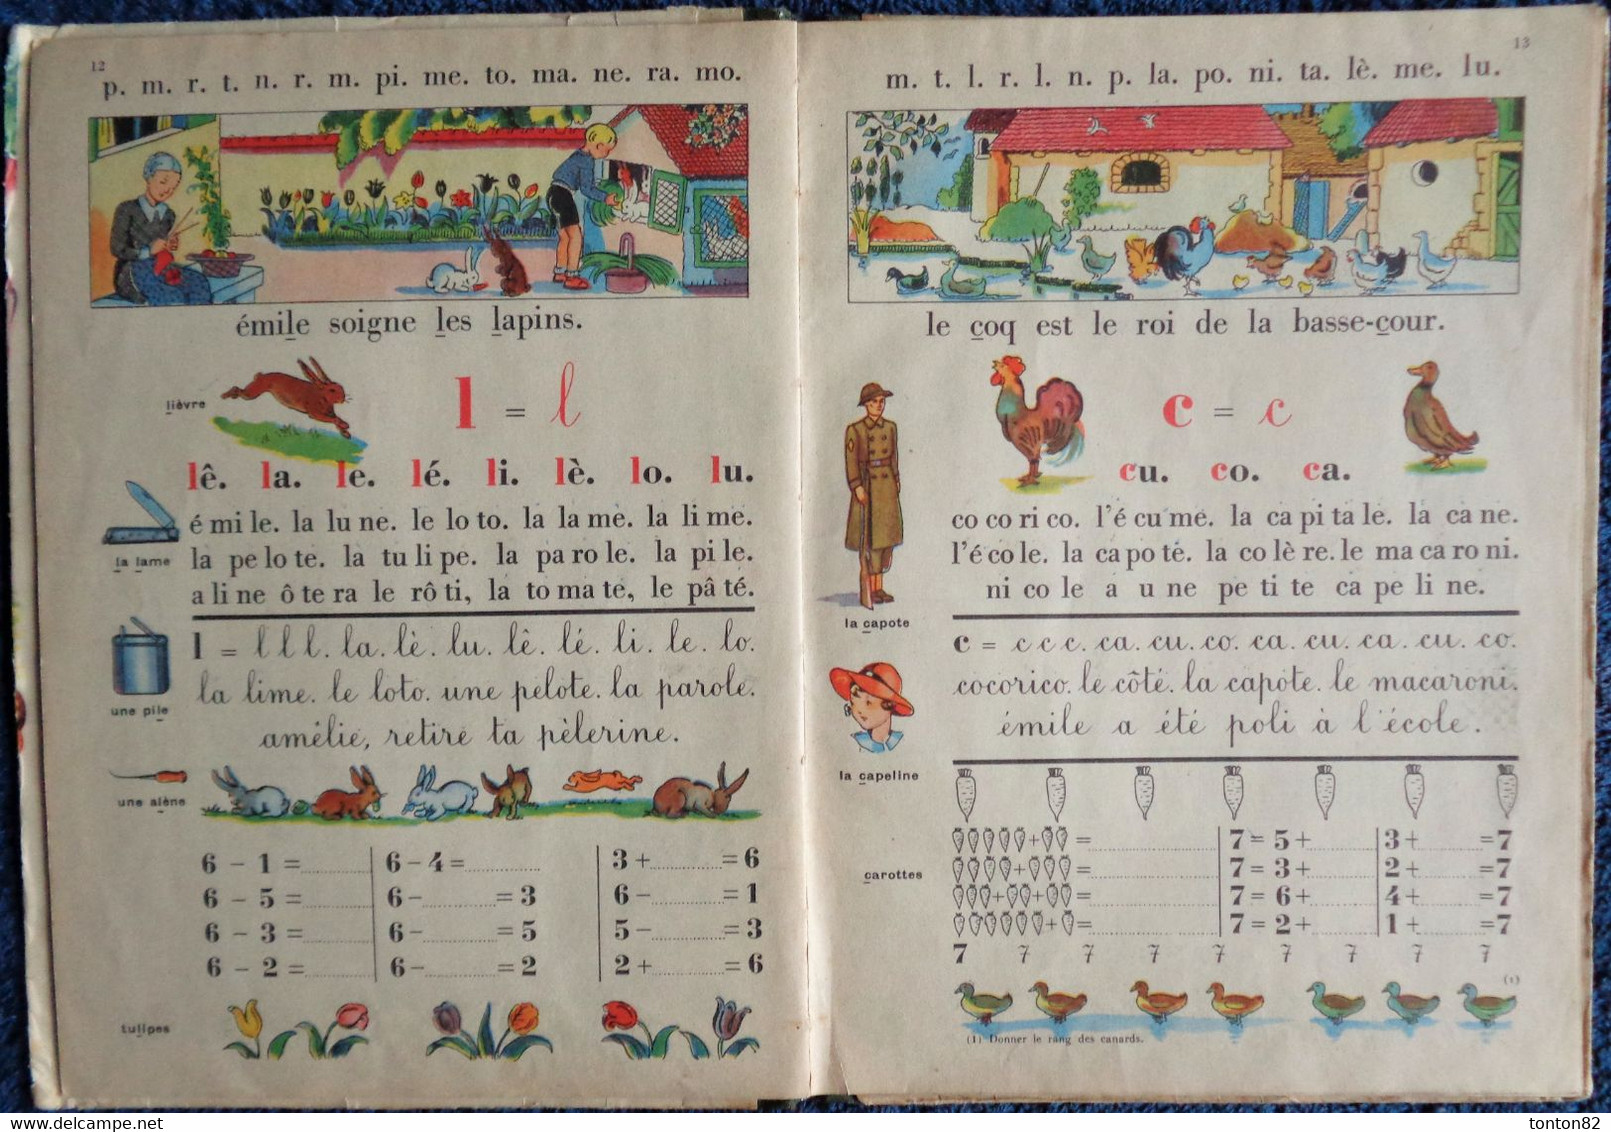 12
p. m. r. t. n. r. m. pi. me. to. ma. ne. ra. mo.
émile soigne les lapins.
lièvre
l = l
lê. la. le. lé. li. lè. lo. lu.
é mi le. la lu ne. le lo to. la la me. la li me.
la pe lo te. la tu li pe. la pa ro le. la pi le.
a li ne ô te ra le rô ti, la to ma te, le pâ té.
la lame
l = l l l. la. lè. lu. lê. lé. li. le. lo.
la lime. le loto. une pelote. la parole.
amélie, retire ta pèlerine.
une pile
une alène
6 - 1 = 6 - 4 = 3 + = 6
6 - 5 = 6 - = 3 6 - = 1
6 - 3 = 6 - = 5 5 - = 3
6 - 2 = 6 - = 2 2 + = 6
tulipes
13
m. t. l. r. l. n. p. la. po. ni. ta. lè. me. lu.
le coq est le roi de la basse-cour.
c = c
cu. co. ca.
co co ri co. l'é cu me. la ca pi ta le. la ca ne.
l'é co le. la ca po te. la co lè re. le ma ca ro ni.
ni co le a u ne pe ti te ca pe li ne.
la capote
c = c c c. ca. cu. co. ca. cu. ca. cu. co.
cocorico. le côté. la capote. le macaroni.
émile a été poli à l'école.
la capeline
carottes
+ = 7 = 5 + 3 + = 7
+ = 7 = 3 + 2 + = 7
+ + = 7 = 6 + 4 + = 7
+ = 7 = 2 + 1 + = 7
7 7 7 7 7 7 7 7 7
(1)
(1) Donner le rang des canards.
tonton82